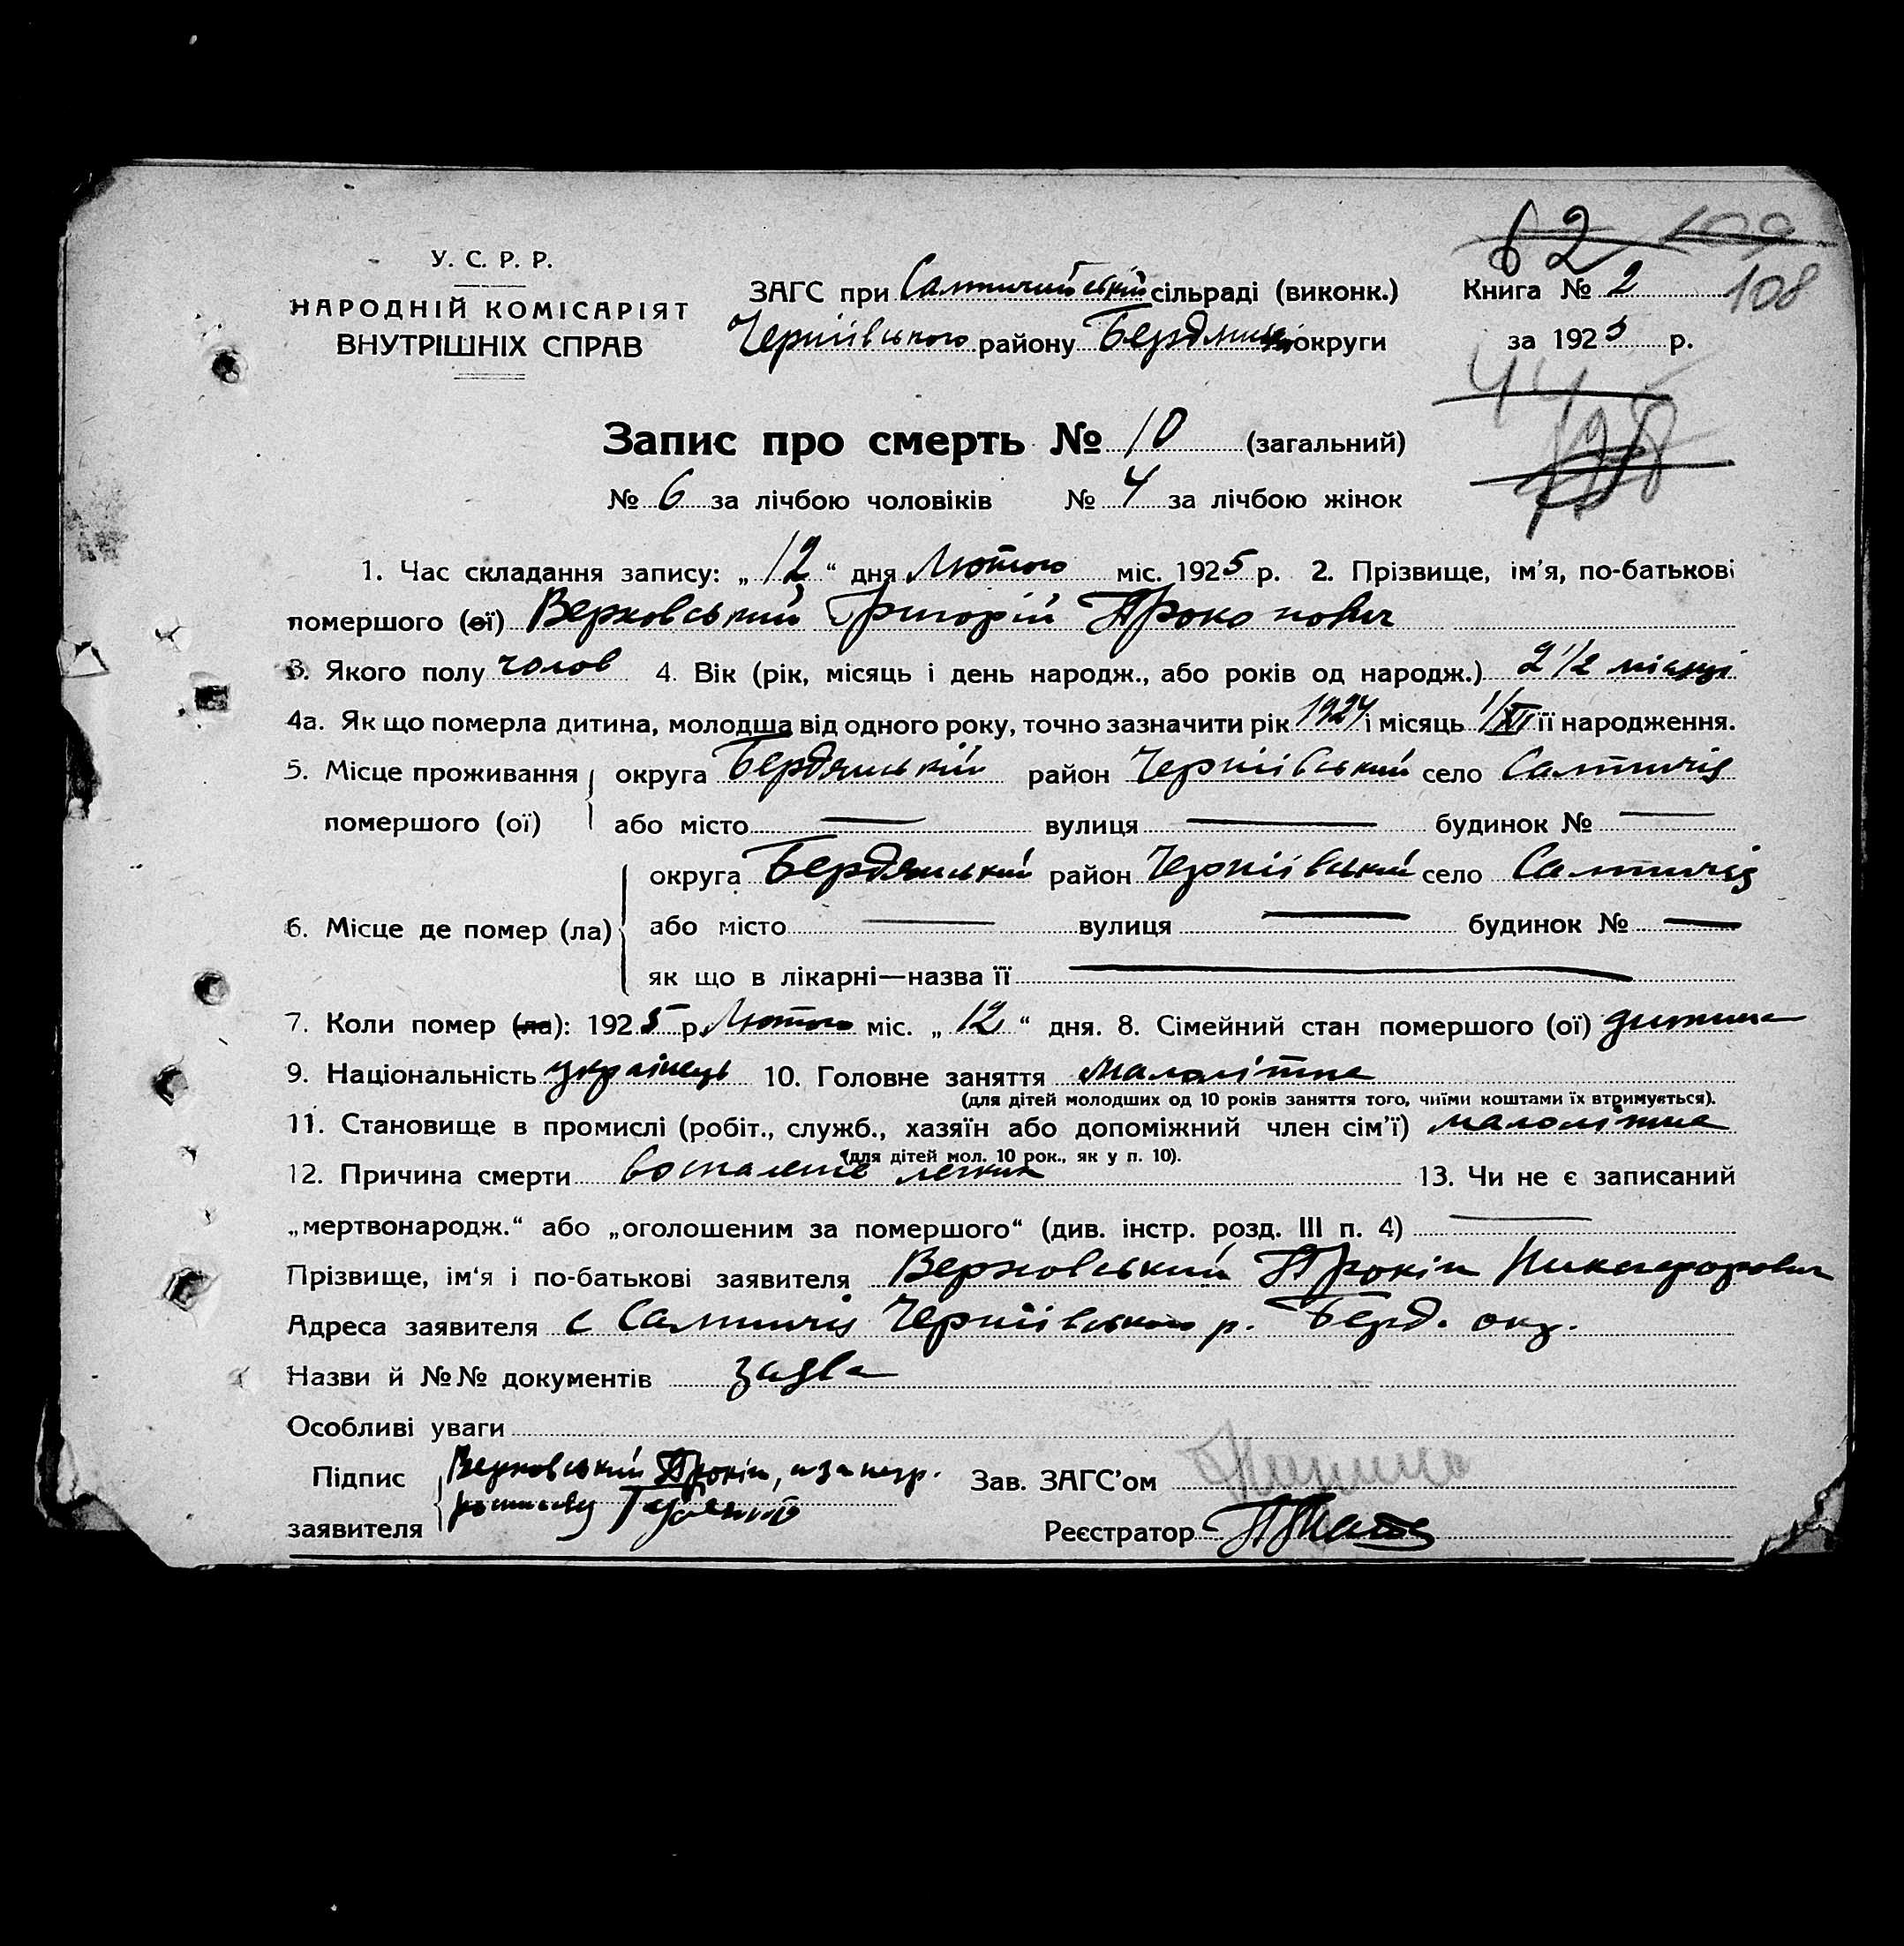 62 109
У. С. Р. Р.
НАРОДНІЙ КОМІСАРІЯТ
ВНУТРІШНІХ СПРАВ
ЗАГС при Салтичийській сільраді (виконк.) Книга № 2 108
Черніівського району Бердянськ округи за 1925 р.
44
Запис про смерть № 10 (загальний)
№ 6 за лічбою чоловіків № 4 за лічбою жінок
1. Час складання запису: „12“ дня Лютого міс. 1925 р. 2. Прізвище, ім'я, по-батькові
помершого (ої) Верховський Григорій Прокопович
3. Якого полу чолов 4. Вік (рік, місяць і день народж., або років од народж.) 2 1/2 місяці
4а. Як що померла дитина, молодша від одного року, точно зазначити рік 1924 і місяць 1/XI її народження.
5. Місце проживання округа Бердянській район Черніівський село Салтичія
помершого (ої) або місто — вулиця — будинок № —
округа Бердянський район Черніівський село Салтичія
6. Місце де помер (ла) або місто — вулиця — будинок № —
як що в лікарні—назва її —
7. Коли помер (ла): 1925 р. Лютого міс. „12“ дня. 8. Сімейний стан помершого (ої) дитина
9. Національність українець 10. Головне заняття малолітне
(для дітей молодших од 10 років заняття того, чиїми коштами їх втримується).
11. Становище в промислі (робіт., служб., хазяїн або допоміжний член сім'ї) малолітне
(для дітей мол. 10 рок., як у п. 10).
12. Причина смерти воспаление легких 13. Чи не є записаний
„мертвонародж.“ або „оголошеним за помершого“ (див. інстр. розд. III п. 4) —
Прізвище, ім'я і по-батькові заявителя Верховський Прокіп Никифорович
Адреса заявителя с Салтичія Черніівського р. Берд. окр.
Назви й №№ документів заява
Особливі уваги
Підпис Верховський Прокіп, а за негр.
заявителя
Зав. ЗАГС'ом
Реєстратор